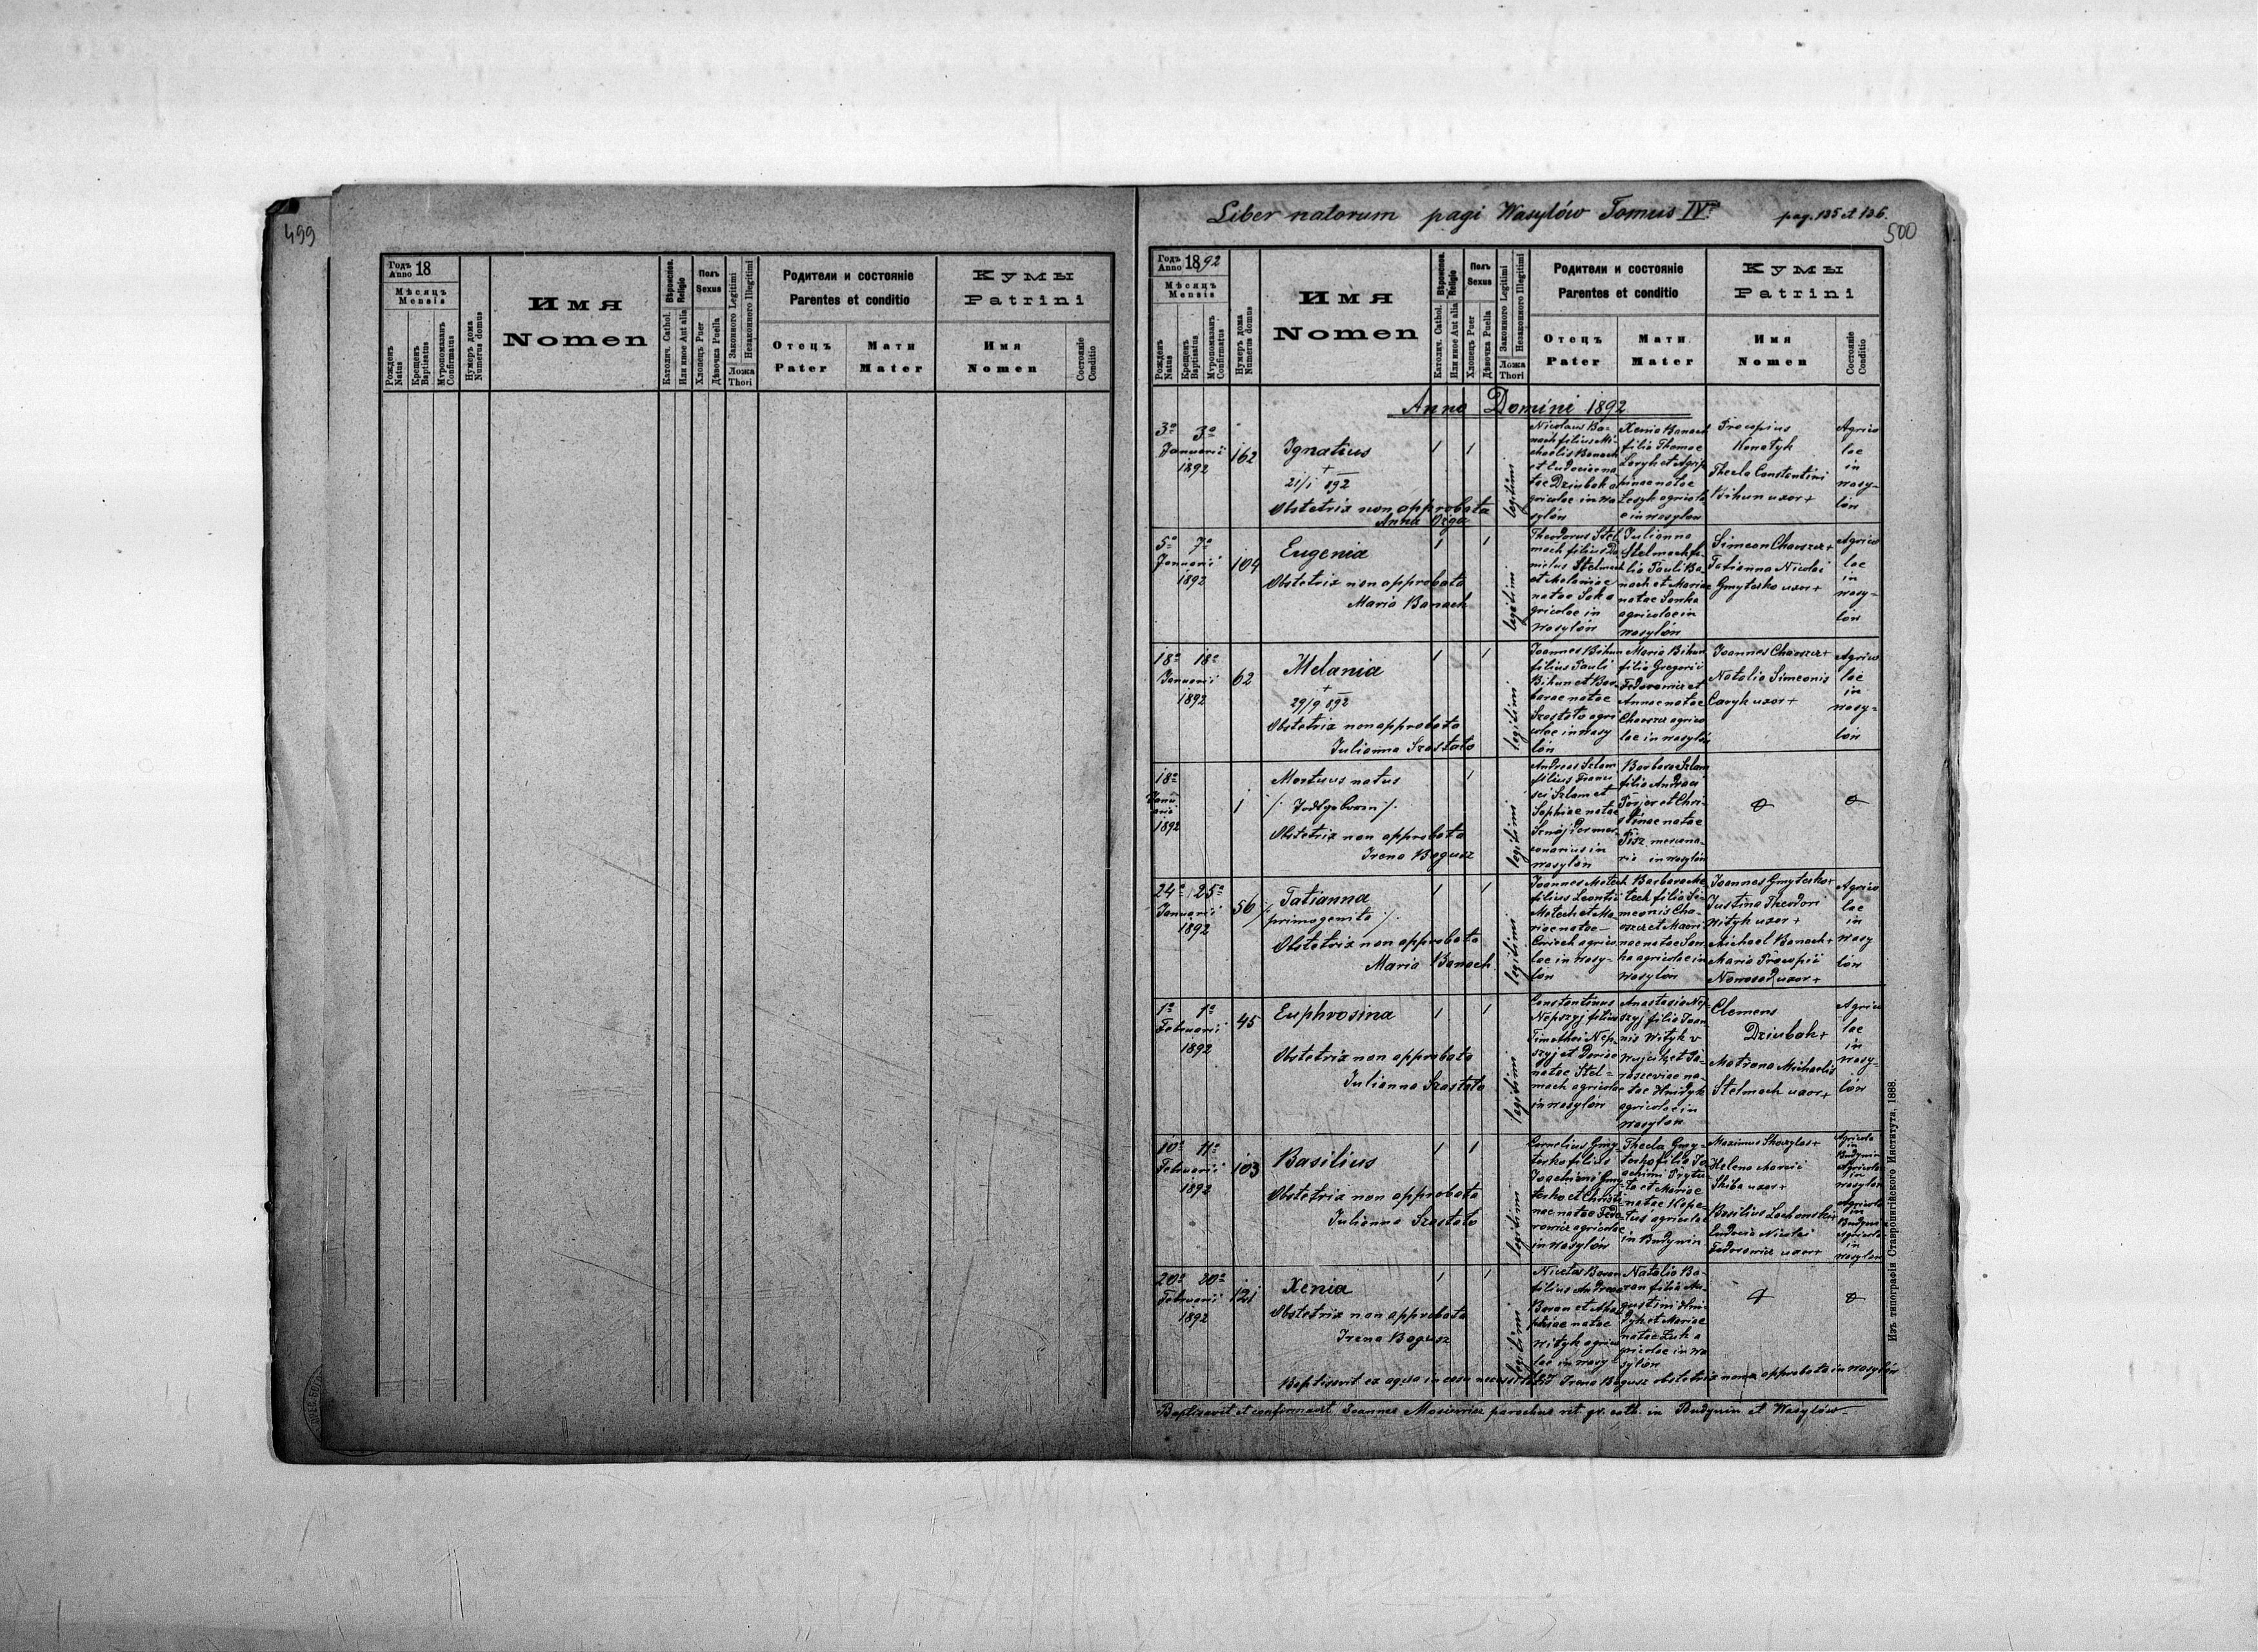 499
Годъ Anno 18
Мѣсяцъ
Mensis
Рожденъ Natus
Крещенъ Baptisatus
Мѵропомазанъ Confirmatus
Нумеръ дома Numerus domus
Имя
Nomen
Вѣроиспов. Religio
Католич. Cathol.
Или иное Aut alia
Полъ
Sexus
Хлопецъ Puer
Дѣвочка Puella
Законного Legitimi
Незаконного Illegitimi
Ложа
Thori
Родители и состояніе
Parentes et conditio
Отецъ
Pater
Мати
Mater
Кумы
Patrini
Имя
Nomen
Состояніе Conditio
Liber natorum pagi Wasylów Tomus IV pag. 135 et 136.
500
Годъ Anno 1892
Мѣсяцъ
Mensis
Рожденъ Natus
Крещенъ Baptisatus
Мѵропомазанъ Confirmatus
Нумеръ дома Numerus domus
Имя
Nomen
Вѣроиспов. Religio
Католич. Cathol.
Или иное Aut alia
Полъ
Sexus
Хлопецъ Puer
Дѣвочка Puella
Законного Legitimi
Незаконного Illegitimi
Ложа
Thori
Родители и состояніе
Parentes et conditio
Отецъ
Pater
Мати
Mater
Кумы
Patrini
Имя
Nomen
Состояніе Conditio
Anno Domini 1892
3a 3a
Januarii
1892
162
Ignatius
+
21/1 892
Obstetrix non approbata
Anna
1 1
legitimi
Nicolaus Ba-
nach filius Mi-
chaelis Banach
et Eudociae na-
tae Dziubak a
gricolae in Wa
sylów
Xenia Banach
filia Thomae
et Agrip
pinae natae
agricola
e in Wasylow
Procopius
Thecla Constantini
Bihun uxor +
Agrico
lae
in
Wasy-
lów
5a 7a
Januarii
1892
104
Eugenia
Obstetrix non approbata
Maria Banach
1 1
legitimi
Theodorus Stel
mach filius Da
nielis Stelmach
et Melaniae
natae Sak a
gricolae in
Wasylów
Julianna
Stelmach fi-
lia Pauli Ba-
nach et Mariae
natae Sanka
agricolae in
Wasylów
Simeon Chaoszcz +
Tatianna Nicolai
Gmyterko uxor +
Agrico
lae
in
Wasy-
lów
18a 18a
Januarii
1892
62
Melania
+
29/9 892
Obstetrix non approbata
Julianna Szostato
1 1
legitimi
Joannes Bihun
filius Pauli
Bihun et Bar
barae natae
Szostato agri
colae in Wasy
lów
Maria Bihun
filia Gregorii
Fedorowicz et
Annae natae
Chaoszcz agrico
lae in Wasylów
Joannes Chaoszcz +
Natalia Simeonis
Caryk uxor +
Agrico
lae
in
Wasy-
lów
18a
Janu
arii
1892
1
Mortuus natus
/. Todtgeboren /.
Obstetrix non approbata
Irena Bogusz
1
legitimi
Andreas Szlam
filius Franci
sci Szlam et
Sophiae natae
in
Wasylów
Barbara Szlam
filia Andreae
et Chri-
stinae natae
Pisz mercena-
ria in Wasylów
24a 25a
Januarii
1892
56
Tatianna
/. primogenita /.
Obstetrix non approbata
Maria Banach
1 1
legitimi
Joannes Matech
filius Leontii
Matech et Ma-
riae natae
agrico
lae in Wasy-
lów
Barbara Ma-
tech filia Si-
meonis Cha-
oszcz et Mari
nae natae San
ka agricolae in
Wasylów
Joannes Gmyterko +
Justina Theodori
Wityk uxor +
Michael Banach +
Maria Procopii
Nowosad uxor +
Agrico
lae
in
Wasy
lów
1a 1a
Februarii
1892
45
Euphrosina
Obstetrix non approbata
Julianna Szostato
1 1
legitimi
Constantinus
Nepszyj filius
Timothei Nep-
szyj et Dariae
natae Stel-
mach agricolae
in Wasylów
Anastasia Nep-
szyj filia Joan
nis Wityk v
Wujcik et Pa-
rasceviae na-
tae Hnidyk
agricolae in
Wasylow
Clemens
Dziubak +
Matrona Michaelis
Stelmach uxor +
Agrico
lae
in
Wasy-
lów
10a 11a
Februarii
1892
103
Basilius
Obstetrix non approbata
Julianna Szostato
1 1
legitimi
Cornelius Gmy-
terko filius
Joachimi Gmy-
terko et Christi
nae natae Fedo
rowicz agricolae
in Wasylów
Thecla Gmy-
terko filia Jo
achimi Pryta
ta et Mariae
natae Kope
tus agricolae
in Budynin
Maximus Skoczylas +
Helena Marcii
Skiba uxor +
Basilius Lachowski +
Eudocia Nicolai
Fedorowicz uxor +
Agricola
in
Budynin
Agricola
in
Wasylów
Agricola
in
Budynin
Agricola
in
Wasylów
20a 20a
Februarii
1892
121
Xenia
Obstetrix non approbata
Irena Bogusz
1 1
legitimi
Nicetas Baran
filius Andreae
Baran et Aga
phiae natae
Wityk agrico
lae in Wasy-
Natalia Ba-
ran filia Au-
gustini Hni-
dyk et Mariae
natae Luk a
gricolae in Wa
sylów
Baptisavit ex aqua in casu necessitatis Irena Bogusz obstetrix non approbata in Wasylów
Baptisavit et confirmavit Joannes Mosiewicz parochus rit. gr. cath. in Budynin et Wasylów
Изъ типографіи Ставропигійского Института, 1888.